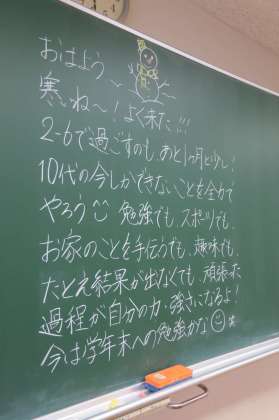 おはよう
寒いね〜！よく来た!!!
2-6で過ごすのも、あと1ヶ月と少し！
10代の今しかできないことを全力で
やろう 勉強でも、スポーツでも、
お家のことを手伝うでも、趣味でも
たとえ結果が出なくても、頑張った
過程が自分の力・強さになるよ！
今は学年末への勉強かな 笑